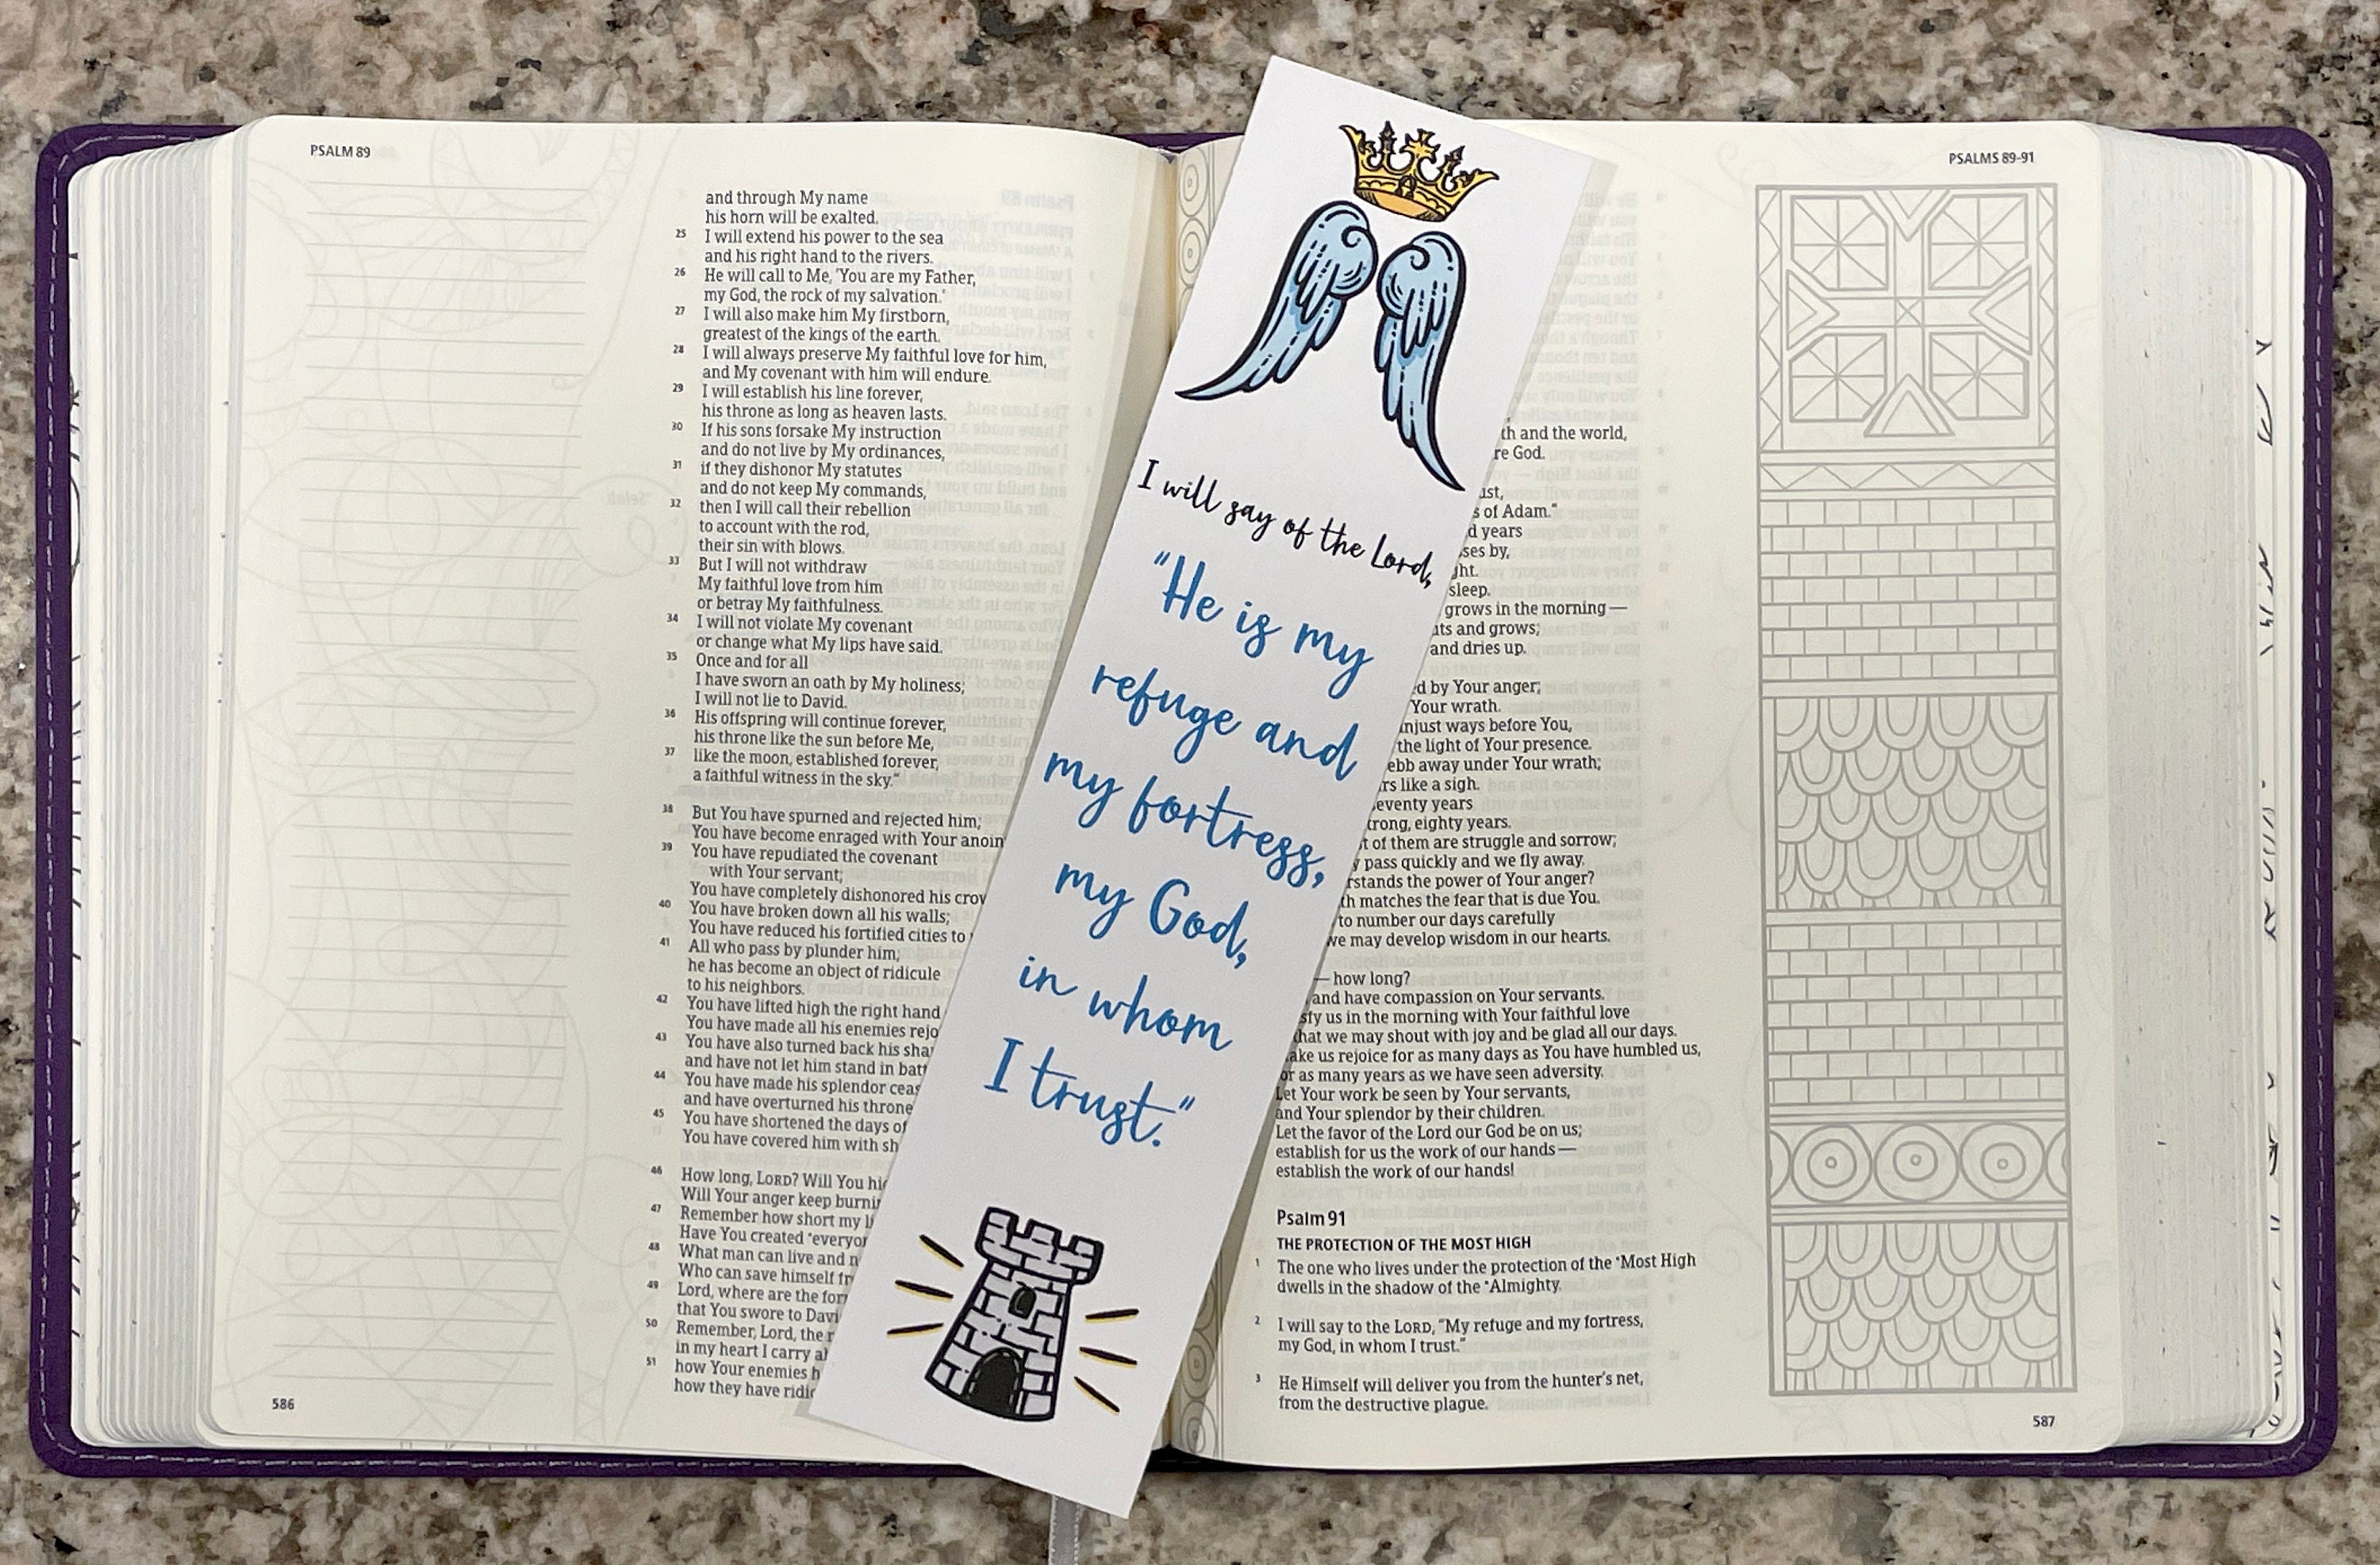 PSALM 89
and through My name
his horn will be exalted.
25 I will extend his power to the sea
and his right hand to the rivers.
26 He will call to Me, 'You are my Father,
my God, the rock of my salvation.'
27 I will also make him My firstborn,
greatest of the kings of the earth.
28 I will always preserve My faithful love for him,
and My covenant with him will endure.
29 I will establish his line forever,
his throne as long as heaven lasts.
30 If his sons forsake My instruction
and do not live by My ordinances,
31 if they dishonor My statutes
and do not keep My commands,
32 then I will call their rebellion
to account with the rod,
their sin with blows.
33 But I will not withdraw
My faithful love from him
or betray My faithfulness.
34 I will not violate My covenant
or change what My lips have said.
35 Once and for all
I have sworn an oath by My holiness;
I will not lie to David.
36 His offspring will continue forever,
his throne like the sun before Me,
37 like the moon, established forever,
a faithful witness in the sky."
38 But You have spurned and rejected him;
You have become enraged with Your anoin
39 You have repudiated the covenant
with Your servant;
You have completely dishonored his crow
40 You have broken down all his walls;
You have reduced his fortified cities to
41 All who pass by plunder him;
he has become an object of ridicule
to his neighbors.
42 You have lifted high the right hand
You have made all his enemies rejo
43 You have also turned back his sha
and have not let him stand in batt
44 You have made his splendor ceas
and have overturned his throne
45 You have shortened the days of
You have covered him with sh
46 How long, LORD? Will You hid
Will Your anger keep burnin
47 Remember how short my li
Have You created *everyon
48 What man can live and n
Who can save himself fr
49 Lord, where are the for
that You swore to Davi
50 Remember, Lord, the r
in my heart I carry al
51 how Your enemies h
how they have ridic
586
I will say of the Lord,
"He is my
refuge and
my fortress,
my God,
in whom
I trust."
PSALMS 89-91
th and the world,
re God.
ust,
s of Adam."
d years
ses by,
ght.
sleep.
grows in the morning—
uts and grows;
and dries up.
d by Your anger;
Your wrath.
njust ways before You,
the light of Your presence.
ebb away under Your wrath;
rs like a sigh.
seventy years
trong, eighty years.
t of them are struggle and sorrow;
y pass quickly and we fly away.
rstands the power of Your anger?
th matches the fear that is due You.
to number our days carefully
we may develop wisdom in our hearts.
— how long?
and have compassion on Your servants.
sfy us in the morning with Your faithful love
that we may shout with joy and be glad all our days.
ake us rejoice for as many days as You have humbled us,
or as many years as we have seen adversity.
Let Your work be seen by Your servants,
and Your splendor by their children.
Let the favor of the Lord our God be on us;
establish for us the work of our hands—
establish the work of our hands!
Psalm 91
THE PROTECTION OF THE MOST HIGH
1 The one who lives under the protection of the *Most High
dwells in the shadow of the *Almighty.
2 I will say to the LORD, "My refuge and my fortress,
my God, in whom I trust."
3 He Himself will deliver you from the hunter's net,
from the destructive plague.
587